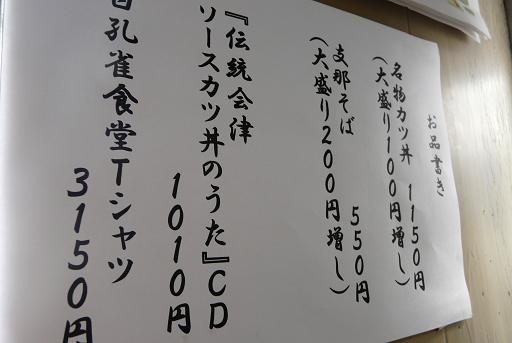 お品書き
名物カツ丼 1150円
(大盛り100円増し)
支那そば 550円
(大盛り200円増し)
『伝統会津
ソースカツ丼のうた』CD
1010円
白孔雀食堂Tシャツ
3150円